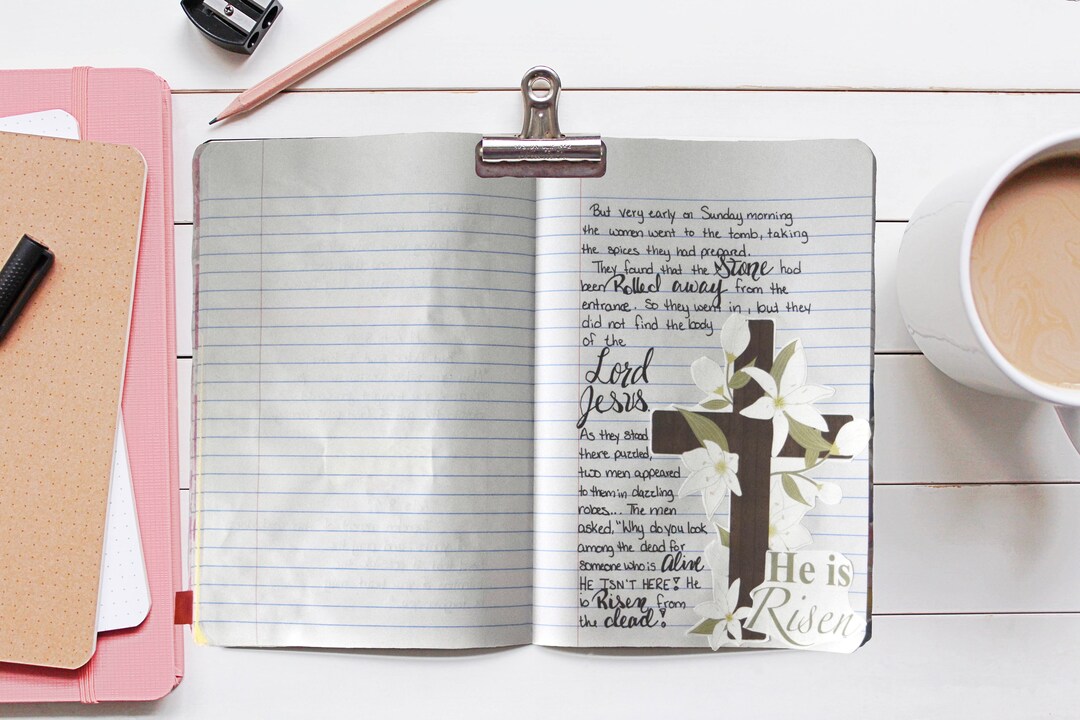 But very early on Sunday morning
the women went to the tomb, taking
the spices they had prepared.
They found that the Stone had
been Rolled away from the
entrance. So they went in, but they
did not find the body
of the
Lord
Jesus.
As they stood
there puzzled,
two men appeared
to them in dazzling
robes... The men
asked, "Why do you look
among the dead for
someone who is Alive
HE ISN'T HERE! He
is Risen from
the dead!
He is
Risen